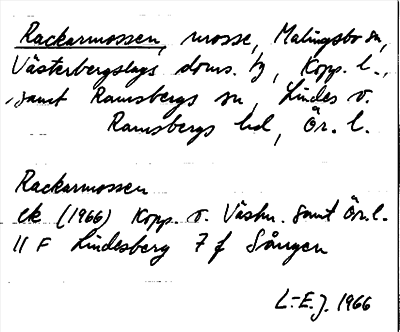 Rackarmossen, mosse, Malingsbo sn,
Västerbergslags doms. tg, Kopp. l.,
samt Ramsbergs sn, Lindes o.
Ramsbergs hd, Ör. l.
Rackarmossen
ek (1966) Kopp. o. Västm. samt Ör. l.
11 F Lindesberg 7 f Sången
L.-E.J. 1966